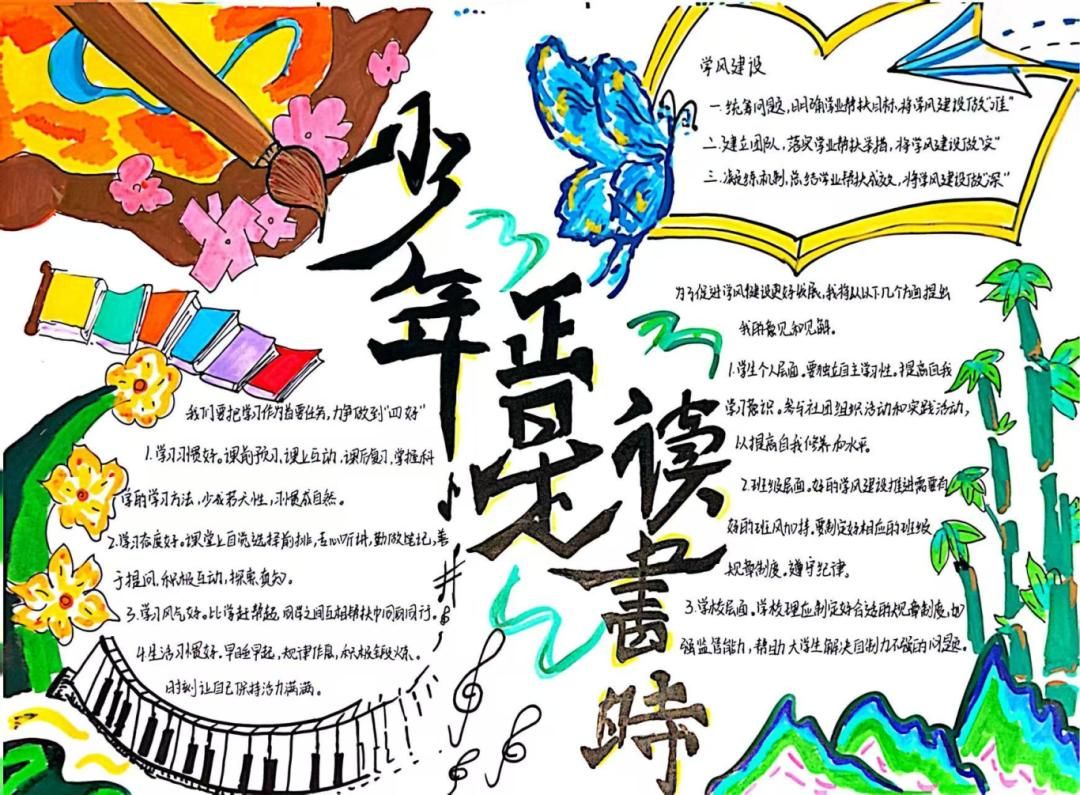 少年正是读書時
学风建设
一.统筹问题,明确学业帮扶目标,将学风建设做"准"
二.建立团队,落实学业帮扶举措,将学风建设做"实"
三.凝练机制,总结学业帮扶成效,将学风建设做"深"
我们要把学习作为首要任务,力争做到"四好"
1.学习习惯好。课前预习,课上互动,课后复习,掌握科
学的学习方法,少成若天性,习惯成自然。
2.学习态度好。课堂上自觉选择前排,去心听讲,勤做笔记,善
于提问,积极互动,探索真知。
3.学习风气好。比学赶帮超,同学之间互相帮扶中间同行。
4.生活习惯好.早睡早起,规律作息,积极锻炼。
时刻让自己保持活力满满。
为了促进学风建设更好发展,我将从以下几个方面提出
我的意见和见解。
1.学生个人层面。要独立自主学习性。提高自我
学习意识。参与社团组织活动和实践活动,
从提高自我修养和水平。
2.班级层面。好的学风建设推进需要有
好的班风加持。要制定好相应的班级
规章制度。遵守纪律。
3.学校层面。学校理应制定好合适的规章制度,加
强监管能力,帮助大学生解决自制力不强的问题。